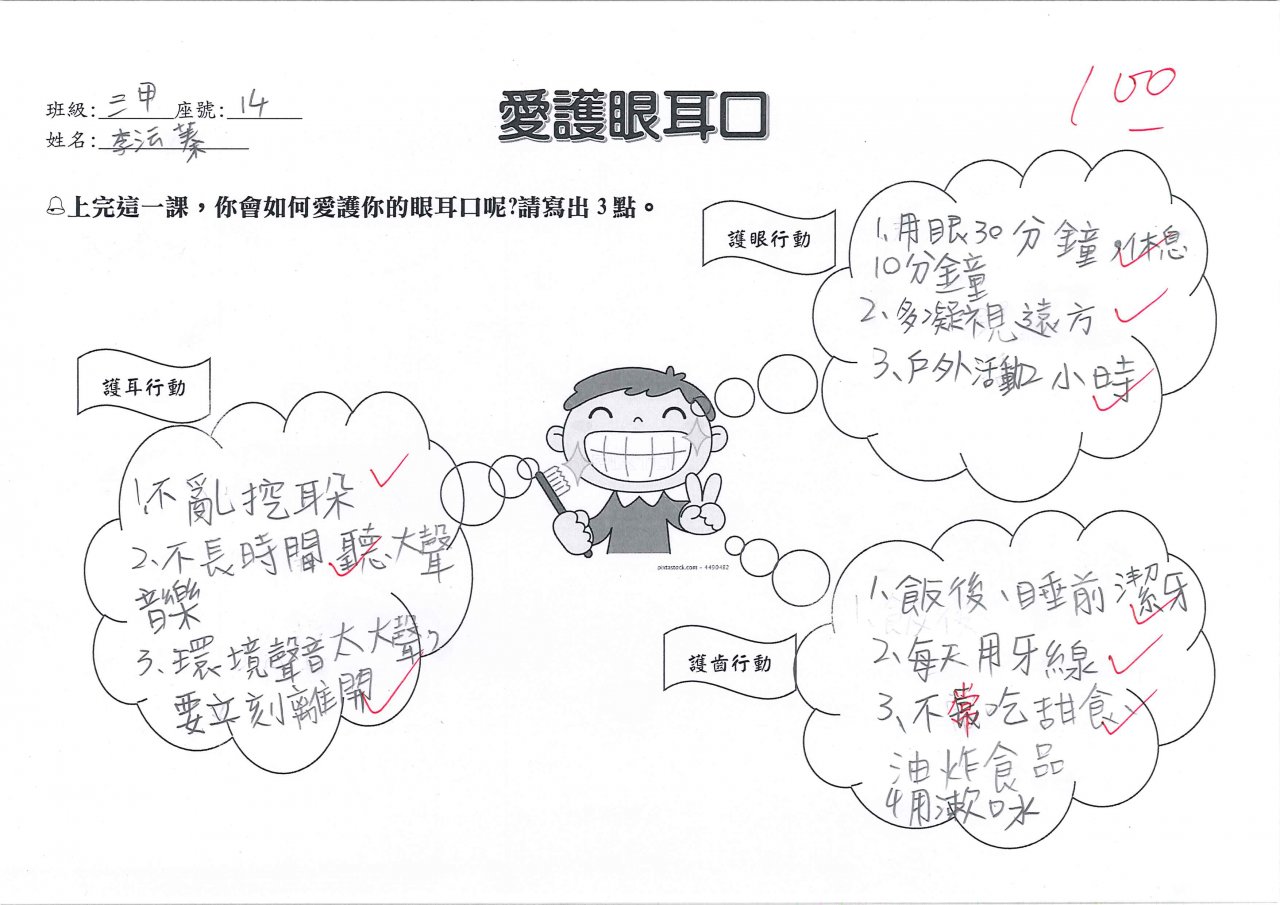 班級：三甲 座號：14
姓名：李沄蓁
愛護眼耳口
100
上完這一課，你會如何愛護你的眼耳口呢?請寫出 3 點。
護眼行動
1、用眼30分鐘，休息
10分鐘
2、多凝視遠方
3、戶外活動2小時
護耳行動
1、不亂挖耳朵
2、不長時間聽大聲
音樂
3、環境聲音太大聲，
要立刻離開
pixtastock.com - 4490482
護齒行動
1、飯後、睡前潔牙
2、每天用牙線
3、不常吃甜食、
油炸食品
4用漱口水